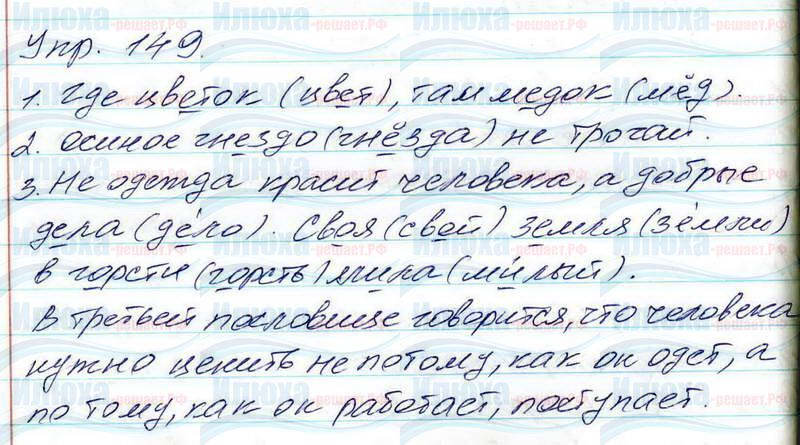 Упр. 149.
1. Где цветок (цвет), там медок (мёд).
2. Осиное гнездо (гнёзда) не трогай.
3. Не одежда красит человека, а добрые
дела (дело). Своя (свой) земля (земли)
в горсти (горсть) мила (милый).
В третьей пословице говорится, что человека
нужно ценить не потому, как он одет, а
по тому, как он работает, поступает.